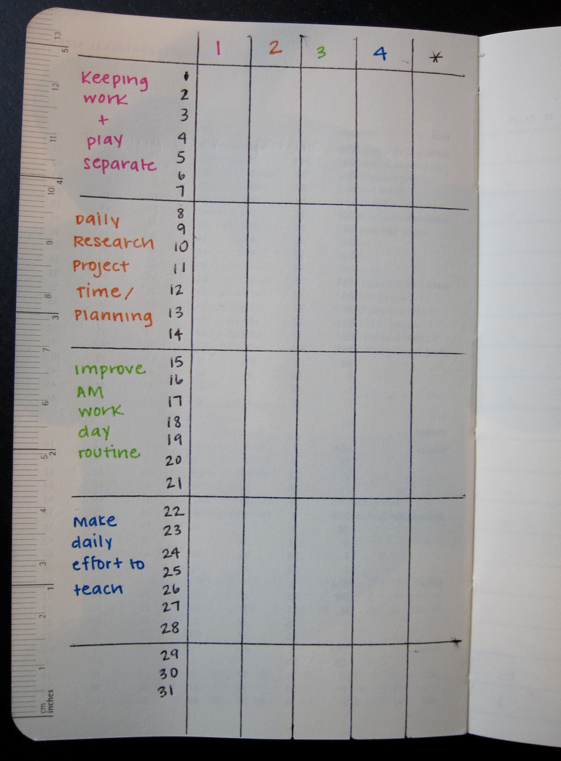 1 2 3 4 *
Keeping 1
work 2
+ 3
play 4
separate 5
6
7
Daily 8
Research 9
10
Project 11
Time/ 12
Planning 13
14
improve 15
AM 16
work 17
day 18
routine 19
20
21
Make 22
daily 23
effort to 24
teach 25
26
27
28
29
30
31
13
12
11
10
9
8
7
6
5
4
3
2
1
cm
5
4
3
2
1
inches